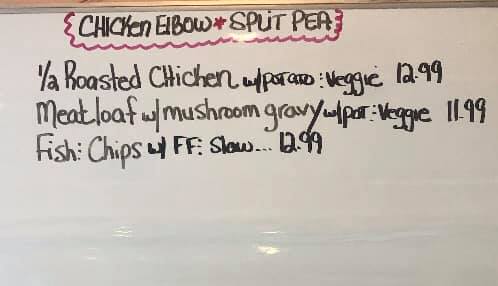 CHICKEN ELBOW * SPLIT PEA
1/2 Roasted Chicken w/potato : Veggie 12.99
Meatloaf w/ mushroom gravy w/pot : Veggie 11.99
Fish : Chips w/ FF : Slaw... 12.99